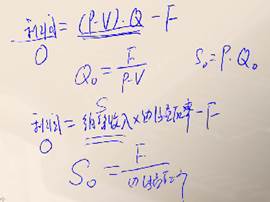 利润 = (P-V)·Q - F
0
Q₀ = F/P-V S₀ = P·Q₀
S
利润 = 销售收入 × 边际贡献率 - F
0
S₀ = F/边际贡献率